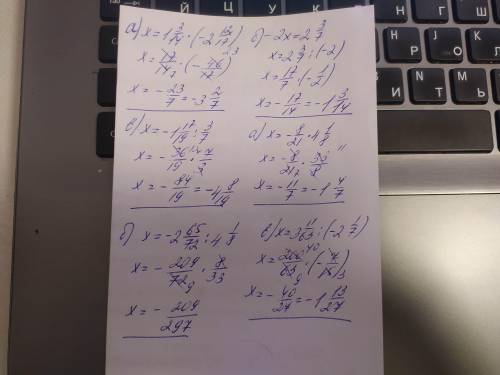 а) x = 1 3/14 · (-2 12/17)
x = 17/14 · (- 46/17)
x = - 23/7 = -3 2/7
б) -2x = 2 3/7
x = 2 3/7 : (-2)
x = 17/7 · (- 1/2)
x = - 17/14 = -1 3/14
в) x = -1 17/19 : 3/7
x = - 36/19 · 7/3
x = - 84/19 = -4 8/19
а) x = - 8/21 · 4 1/8
x = - 8/21 · 33/8
x = - 11/7 = -1 4/7
б) x = -2 65/72 : 4 1/8
x = - 209/72 · 8/33
x = - 209/297
в) x = 3 11/63 : (-2 1/7)
x = 200/63 · (- 7/15)
x = - 40/27 = -1 13/27